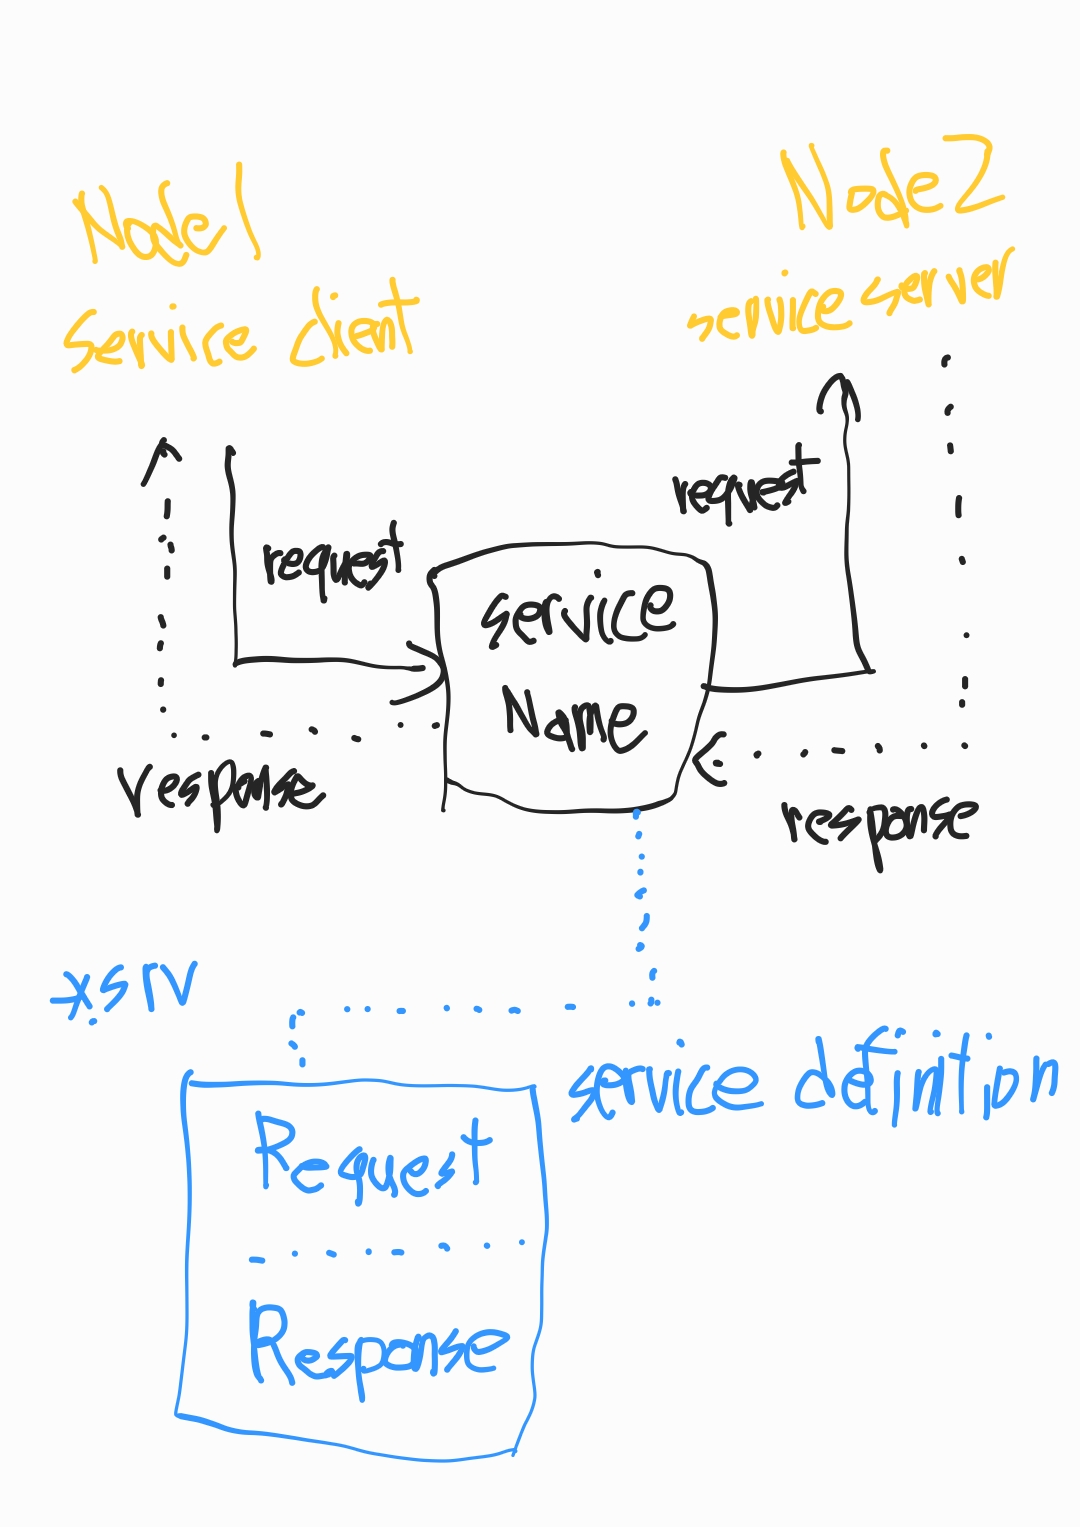 Node1
service client
Node2
service server
request
request
service
Name
response
response
*.srv
service definition
Request
Response